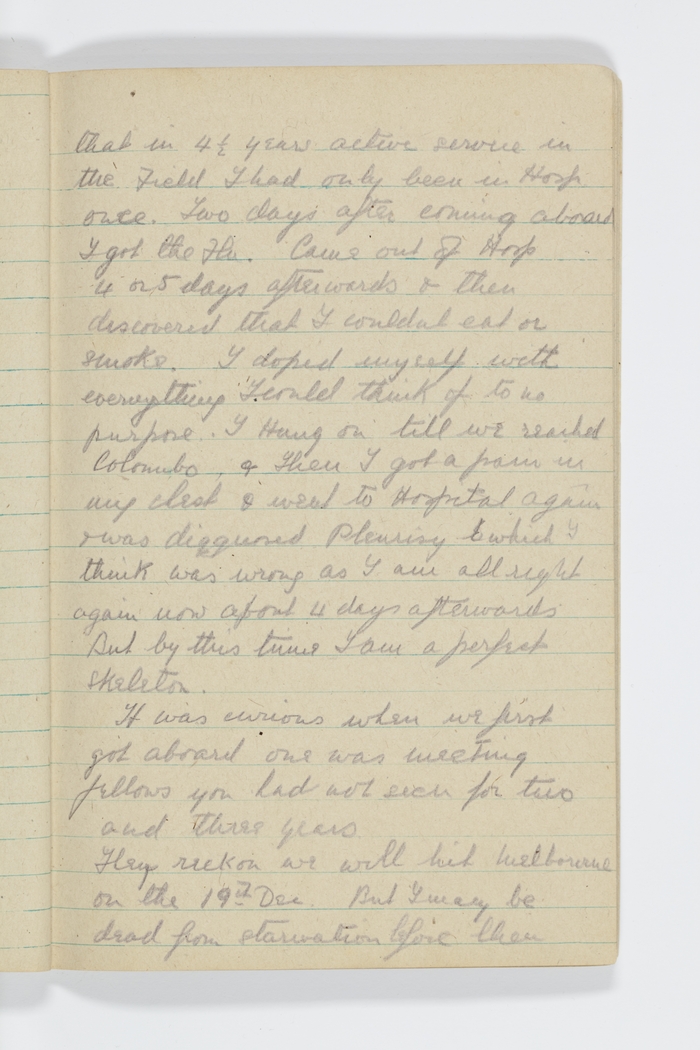 that in 4½ years active service in
the Field I had only been in Hosp
once. Two days after coming aboard
I got the Flu. Came out of Hosp
4 or 5 days afterwards & then
discovered that I couldnt eat or
smoke. I doped myself with
everything I could think of to no
purpose. I Hung on till we reached
Colombo, & then I got a pain in
my chest & went to Hospital again
& was diagnosed Pleurisy which I
think was wrong as I am all right
again now about 4 days afterwards
But by this time I am a perfect
skeleton.
It was curious when we first
got aboard one was meeting
fellows you had not seen for two
and three years
They reckon we will hit Melbourne
on the 19th Dec. But I may be
dead from starvation before then